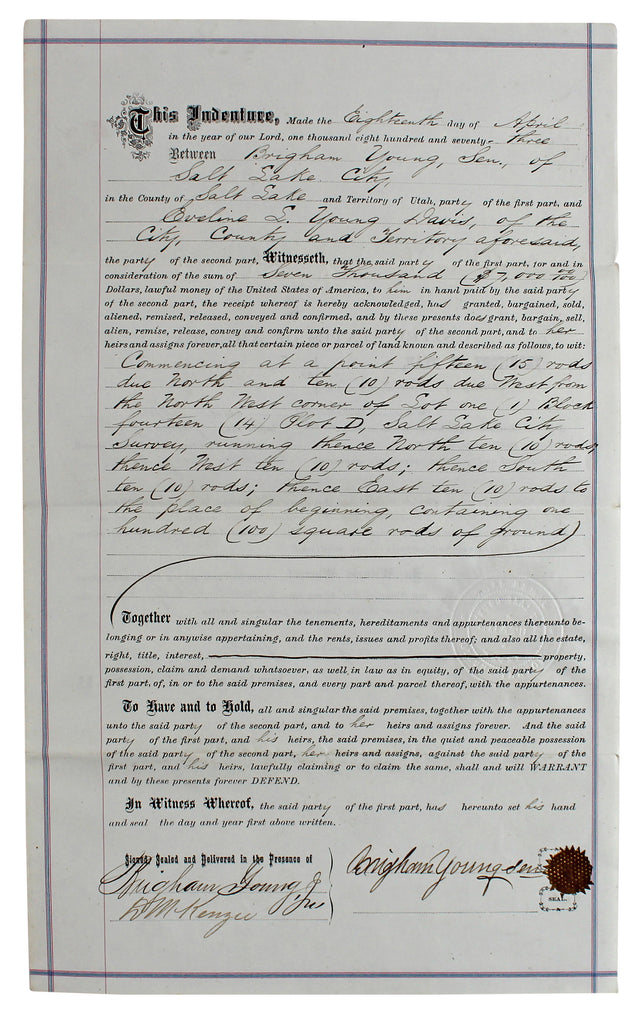 This Indenture, Made the Eighteenth day of April
in the year of our Lord, one thousand eight hundred and seventy-three
Between Brigham Young, Sen., of
Salt Lake City,
in the County of Salt Lake and Territory of Utah, party of the first part, and
Eveline L. Young Davis, of the
City, County and Territory aforesaid,
the party of the second part, Witnesseth, that the said party of the first part, for and in
consideration of the sum of Seven Thousand ($7,000 00/100)
Dollars, lawful money of the United States of America, to him in hand paid by the said party
of the second part, the receipt whereof is hereby acknowledged, has granted, bargained, sold,
aliened, remised, released, conveyed and confirmed, and by these presents does grant, bargain, sell,
alien, remise, release, convey and confirm unto the said party of the second part, and to her
heirs and assigns forever, all that certain piece or parcel of land known and described as follows, to wit:
Commencing at a point fifteen (15) rods
due North and ten (10) rods due West from
the North West corner of Lot one (1) Block
fourteen (14) Plot D, Salt Lake City
Survey, running thence North ten (10) rods;
thence West ten (10) rods; thence South
ten (10) rods; thence East ten (10) rods to
the place of beginning, containing one
hundred (100) square rods of ground)
Together with all and singular the tenements, hereditaments and appurtenances thereunto be-
longing or in anywise appertaining, and the rents, issues and profits thereof; and also all the estate,
right, title, interest, property,
possession, claim and demand whatsoever, as well in law as in equity, of the said party of the
first part, of, in or to the said premises, and every part and parcel thereof, with the appurtenances.
To Have and to Hold, all and singular the said premises, together with the appurtenances
unto the said party of the second part, and to her heirs and assigns forever. And the said
party of the first part, and his heirs, the said premises, in the quiet and peaceable possession
of the said party of the second part, her heirs and assigns, against the said party of the
first part, and his heirs, lawfully claiming or to claim the same, shall and will WARRANT
and by these presents forever DEFEND.
In Witness Whereof, the said party of the first part, has hereunto set his hand
and seal the day and year first above written.
Signed, Sealed and Delivered in the Presence of
Brigham Young Jr
D McKenzie
Brigham Young Sen
SEAL.